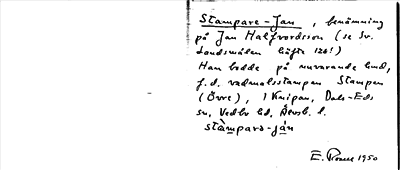 Stampare-Jan, benämning
på Jan Halfvordsson (se Sv.
Landsmålen häfte 126!)
Han bodde på nuvarande hmd,
f.d. vadmalsstampen Stampen
(Övre), i Knipan, Dals-Eds
sn, Vedbo hd, Älvsb. l.
stàmparə-ján
E. Rome 1950